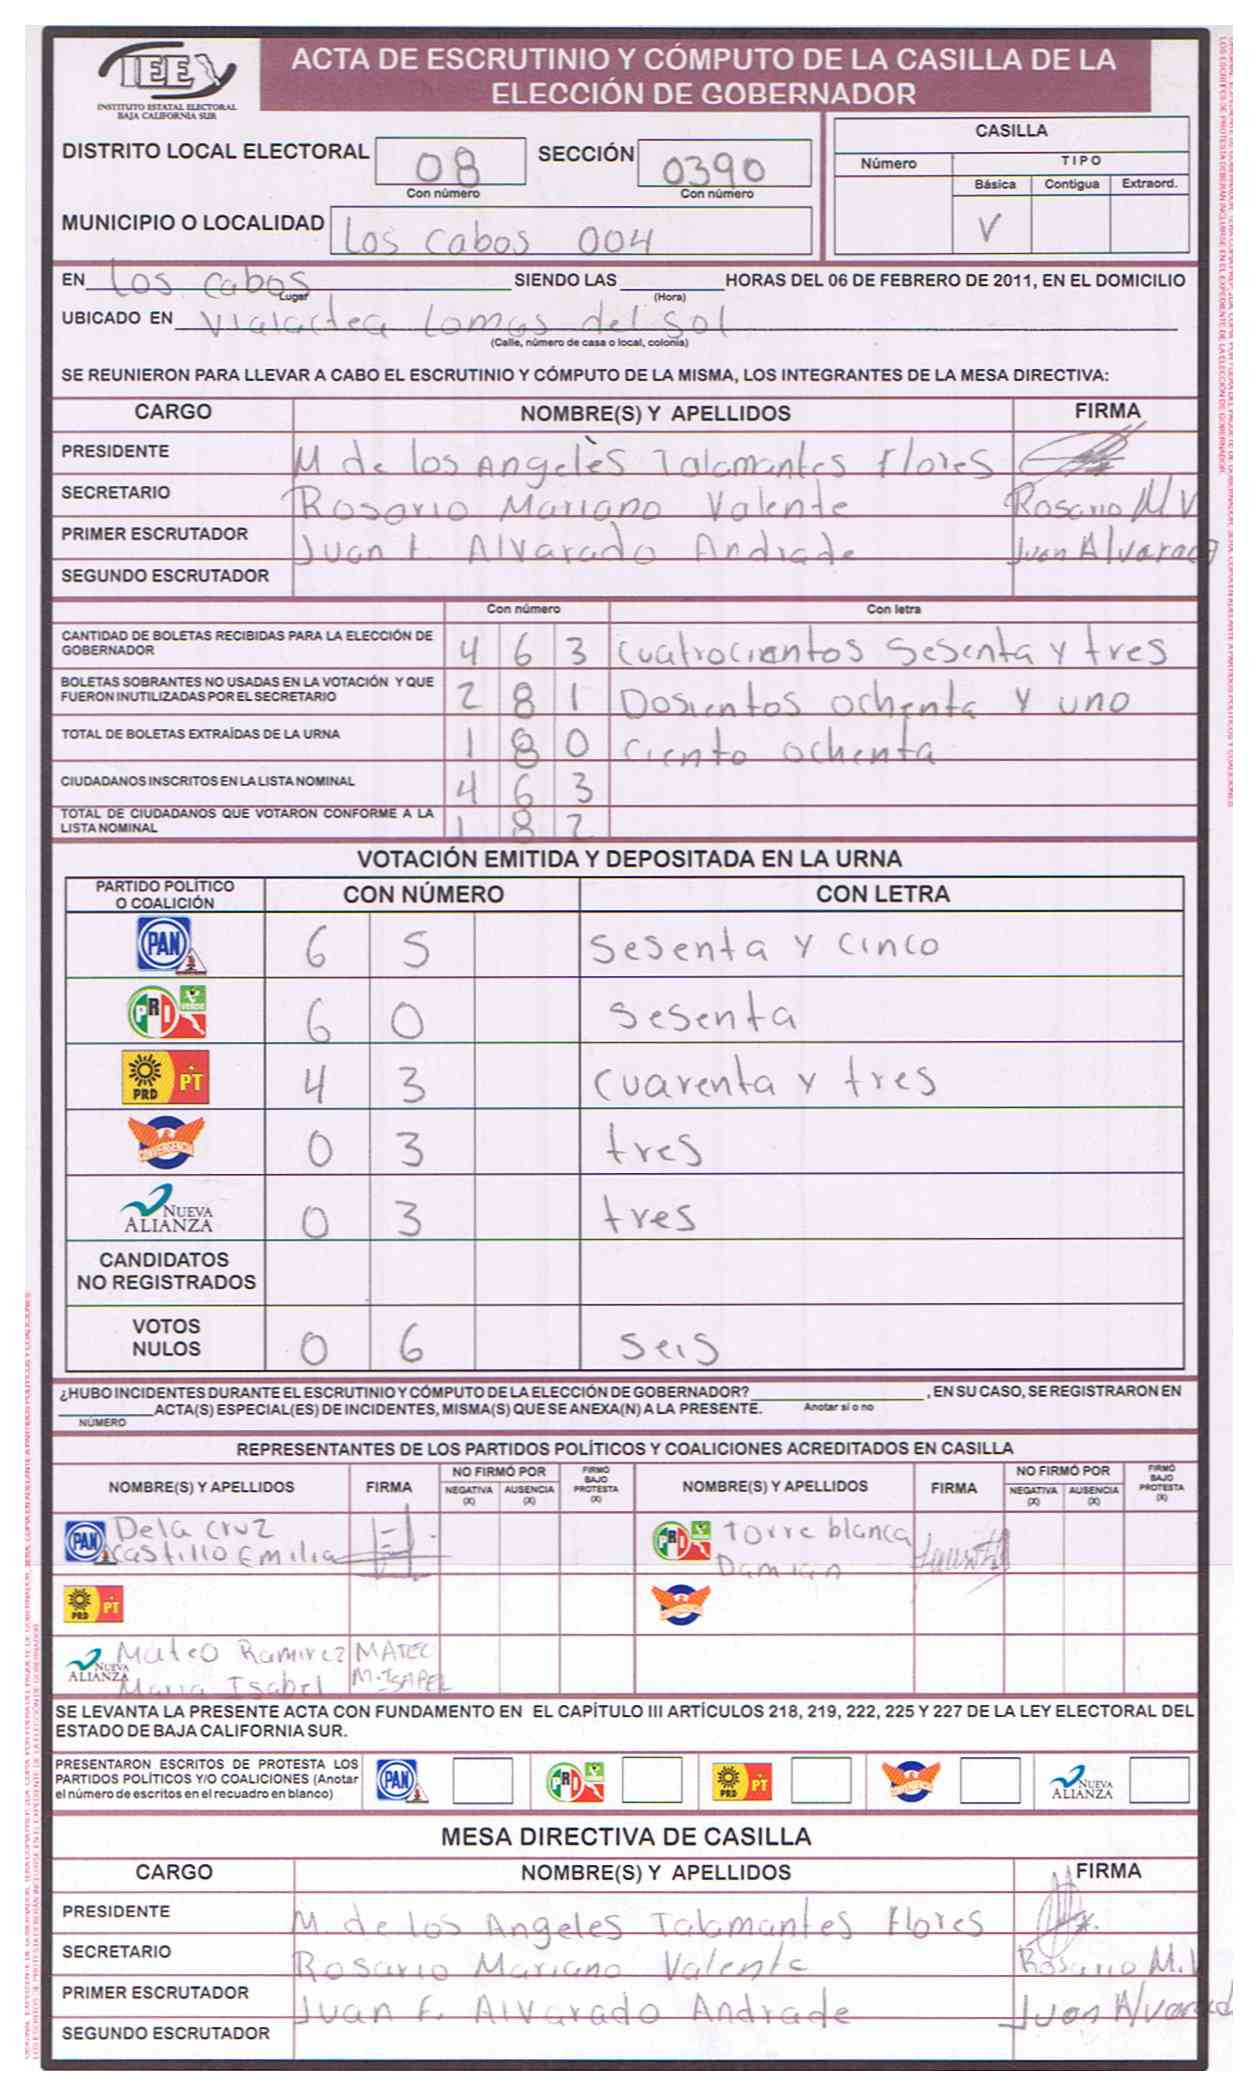 IEE
INSTITUTO ESTATAL ELECTORAL
BAJA CALIFORNIA SUR
ACTA DE ESCRUTINIO Y CÓMPUTO DE LA CASILLA DE LA
ELECCIÓN DE GOBERNADOR
DISTRITO LOCAL ELECTORAL 08 SECCIÓN 0390
Con número Con número
MUNICIPIO O LOCALIDAD Los Cabos 004
CASILLA
Número TIPO
Básica Contigua Extraord.
V
EN Los cabos SIENDO LAS HORAS DEL 06 DE FEBRERO DE 2011, EN EL DOMICILIO
Lugar (Hora)
UBICADO EN Vialactea Lomas del Sol
(Calle, número de casa o local, colonia)
SE REUNIERON PARA LLEVAR A CABO EL ESCRUTINIO Y CÓMPUTO DE LA MISMA, LOS INTEGRANTES DE LA MESA DIRECTIVA:
CARGO NOMBRE(S) Y APELLIDOS FIRMA
PRESIDENTE M de los Angelès Talamantes Flores
SECRETARIO Rosario Mariano Valente Rosario M.V
PRIMER ESCRUTADOR Juan F. Alvarado Andrade Juan Alvarado
SEGUNDO ESCRUTADOR
Con número Con letra
CANTIDAD DE BOLETAS RECIBIDAS PARA LA ELECCIÓN DE
GOBERNADOR 4 6 3 Cuatrocientos Sesenta y tres
BOLETAS SOBRANTES NO USADAS EN LA VOTACIÓN Y QUE
FUERON INUTILIZADAS POR EL SECRETARIO 2 8 1 Dosientos ochenta y uno
TOTAL DE BOLETAS EXTRAÍDAS DE LA URNA 1 8 0 ciento ochenta
CIUDADANOS INSCRITOS EN LA LISTA NOMINAL 4 6 3
TOTAL DE CIUDADANOS QUE VOTARON CONFORME A LA
LISTA NOMINAL 1 8 2
VOTACIÓN EMITIDA Y DEPOSITADA EN LA URNA
PARTIDO POLÍTICO
O COALICIÓN CON NÚMERO CON LETRA
PAN 6 5 Sesenta y cinco
PRI VERDE 6 0 Sesenta
PRD PT 4 3 Cuarenta y tres
CONVERGENCIA 0 3 tres
NUEVA
ALIANZA 0 3 tres
CANDIDATOS
NO REGISTRADOS
VOTOS
NULOS 0 6 Seis
¿HUBO INCIDENTES DURANTE EL ESCRUTINIO Y CÓMPUTO DE LA ELECCIÓN DE GOBERNADOR? , EN SU CASO, SE REGISTRARON EN
ACTA(S) ESPECIAL(ES) DE INCIDENTES, MISMA(S) QUE SE ANEXA(N) A LA PRESENTE. Anotar sí o no
NÚMERO
REPRESENTANTES DE LOS PARTIDOS POLÍTICOS Y COALICIONES ACREDITADOS EN CASILLA
NOMBRE(S) Y APELLIDOS FIRMA NO FIRMÓ POR NEGATIVA (X) AUSENCIA (X) FIRMÓ BAJO PROTESTA (X) NOMBRE(S) Y APELLIDOS FIRMA NO FIRMÓ POR NEGATIVA (X) AUSENCIA (X) FIRMÓ BAJO PROTESTA (X)
PAN Dela cruz PRI Torre blanca
Castillo Emilia Damian
PRD PT CONVERGENCIA
NUEVA ALIANZA Mateo Ramirez MATEO
Maria Isabel M. ISABEL
SE LEVANTA LA PRESENTE ACTA CON FUNDAMENTO EN EL CAPÍTULO III ARTÍCULOS 218, 219, 222, 225 Y 227 DE LA LEY ELECTORAL DEL
ESTADO DE BAJA CALIFORNIA SUR.
PRESENTARON ESCRITOS DE PROTESTA LOS
PARTIDOS POLÍTICOS Y/O COALICIONES (Anotar
el número de escritos en el recuadro en blanco)
PAN PRI PRD PT CONVERGENCIA NUEVA ALIANZA
MESA DIRECTIVA DE CASILLA
CARGO NOMBRE(S) Y APELLIDOS FIRMA
PRESIDENTE M. de los Angeles Talamantes Flores
SECRETARIO Rosario Mariano Valente Rosario M.V
PRIMER ESCRUTADOR Juan F. Alvarado Andrade Juan Alvarad
SEGUNDO ESCRUTADOR